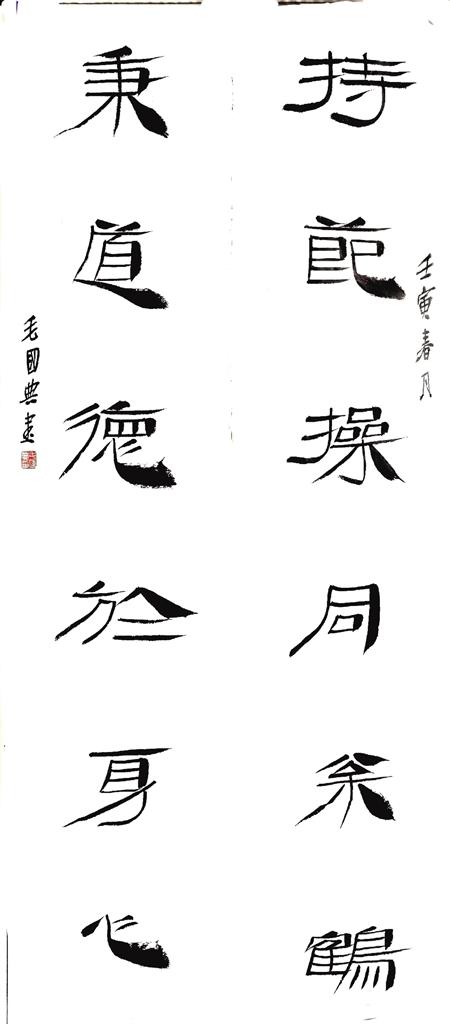 壬寅春月
持節操同枀鶴
秉道德於身心
毛國典書